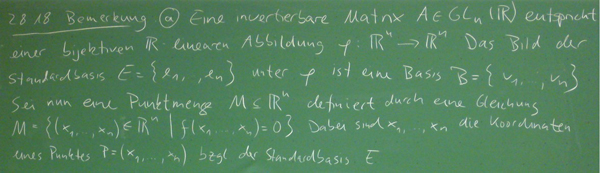 2.8.18 Bemerkung (a) Eine invertierbare Matrix A ∈ GLn(ℝ) entspricht
einer bijektiven ℝ-linearen Abbildung φ: ℝⁿ → ℝⁿ Das Bild der
Standardbasis E = {e₁, .., eₙ} unter φ ist eine Basis B = {v₁, .., vₙ}
Sei nun eine Punktmenge M ⊆ ℝⁿ definiert durch eine Gleichung
M = {(x₁, .., xₙ) ∈ ℝⁿ | f(x₁, .., xₙ) = 0} Dabei sind x₁, .., xₙ die Koordinaten
eines Punktes P = (x₁, .., xₙ) bzgl der Standardbasis E